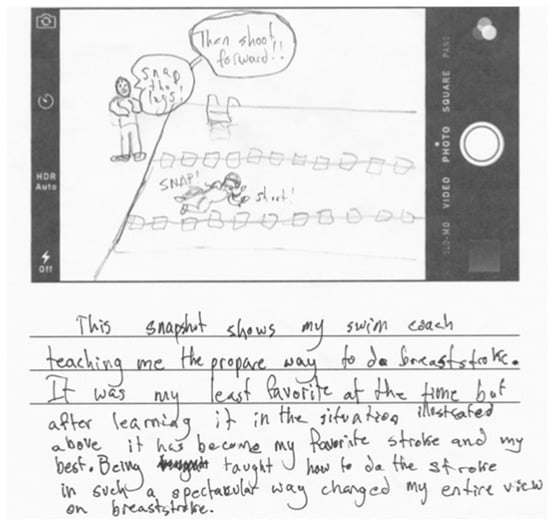 Then shoot
forward!!
Snap
the
legs!
HDR
Auto
Off
SNAP!
shoot!
PANO
SQUARE
PHOTO
VIDEO
SLO-MO
This snapshot shows my swim coach
teaching me the propare way to do breaststroke.
It was my least favorite at the time but
after learning it in the situation illustrated
above it has become my favorite stroke and my
best. Being taught how to do the stroke
in such a spectacular way changed my entire view
on breaststroke.